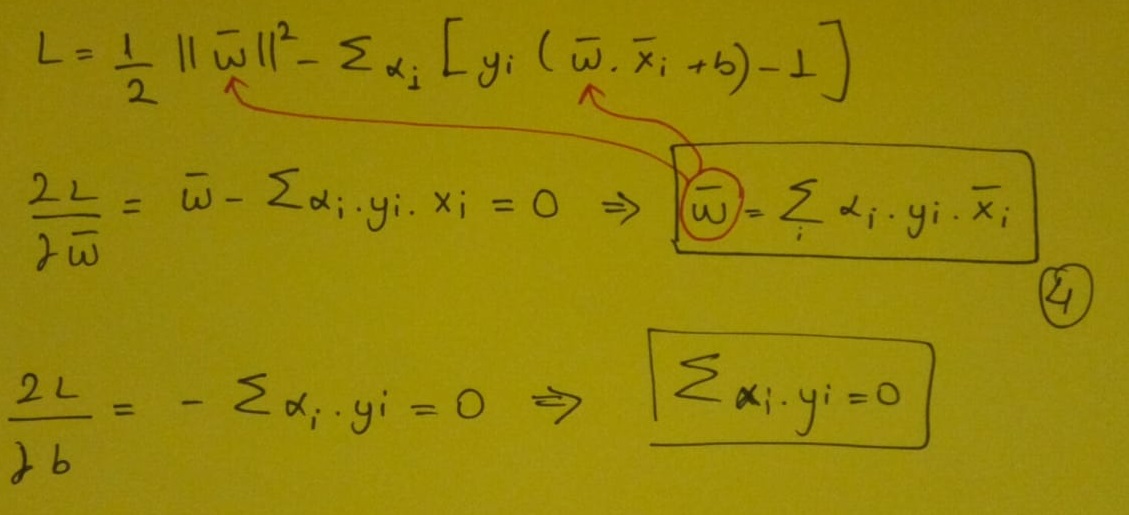 L = 1/2 ||w̄||² - Σ αᵢ [yᵢ (w̄ . x̄ᵢ + b) - 1]
∂L/∂w̄ = w̄ - Σ αᵢ . yᵢ . xᵢ = 0 ⇒ w̄ = Σᵢ αᵢ . yᵢ . x̄ᵢ
4
∂L/∂b = - Σ αᵢ . yᵢ = 0 ⇒ Σ αᵢ . yᵢ = 0